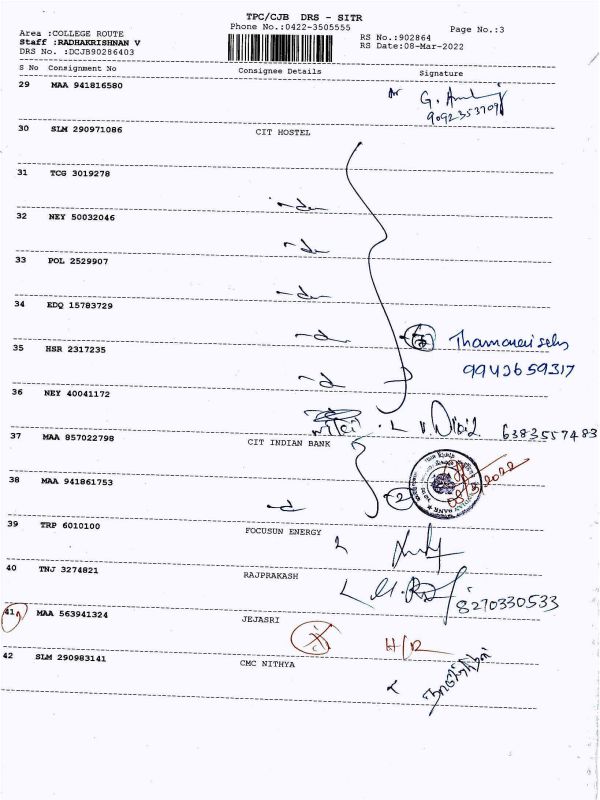 TPC/CJB DRS - SITR
Phone No.:0422-3505555
Page No.:3
Area :COLLEGE ROUTE
Staff :RADHAKRISHNAN V
DRS No. :DCJB90286403
RS No.:902864
RS Date:08-Mar-2022
S No Consignment No Consignee Details Signature
29 MAA 941816580
9092353709
30 SLM 290971086 CIT HOSTEL
31 TCG 3019278
32 NEY 50032046
33 POL 2529907
34 EDQ 15783729
35 HSR 2317235
Thamaraiselvi
9942659317
36 NEY 40041172
6383557483
37 MAA 857022798 CIT INDIAN BANK
38 MAA 941861753
2
39 TRP 6010100 FOCUSUN ENERGY
40 TNJ 3274821 RAJPRAKASH
8270330533
41 MAA 563941324 JEJASRI
42 SLM 290983141 CMC NITHYA